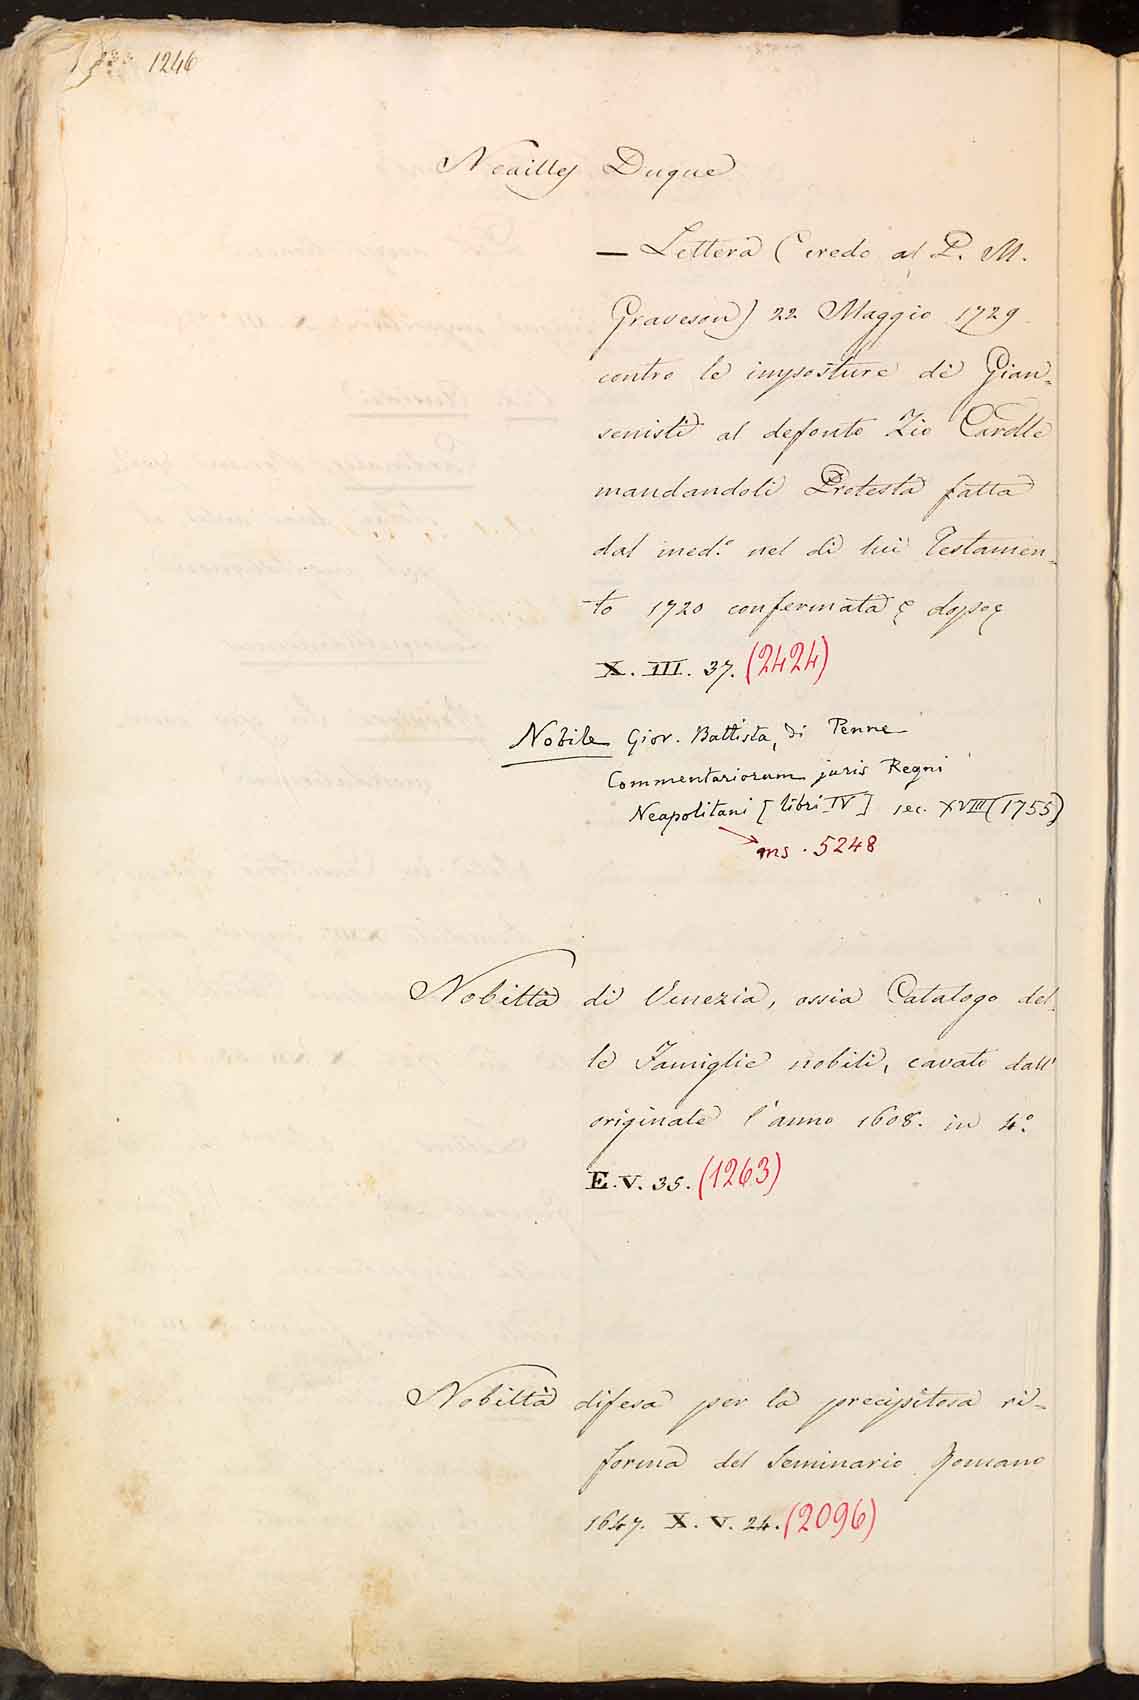 1246
Noailles Duque
— Lettera (credo al P. M.
Graveson) 22 Maggio 1729
contro le imposture di Gian-
senisti al defonto Zio Cardle
mandandoli Protesta fatta
dal med.º nel di lui Testamen-
to 1720 confermata e dopo
X. III. 37. (2424)
Nobile Giov. Battista, di Penne
Commentariorum juris Regni
Neapolitani [libri IV] sec. XVIII (1755)
ms. 5248
Nobiltà di Venezia, ossia Catalogo del-
le Famiglie nobili, cavato dall'
originale l'anno 1608. in 4.º
E. V. 35. (1263)
Nobiltà difesa per la precipitosa ri-
forma del Seminario Romano
1647. X. V. 24. (2096)